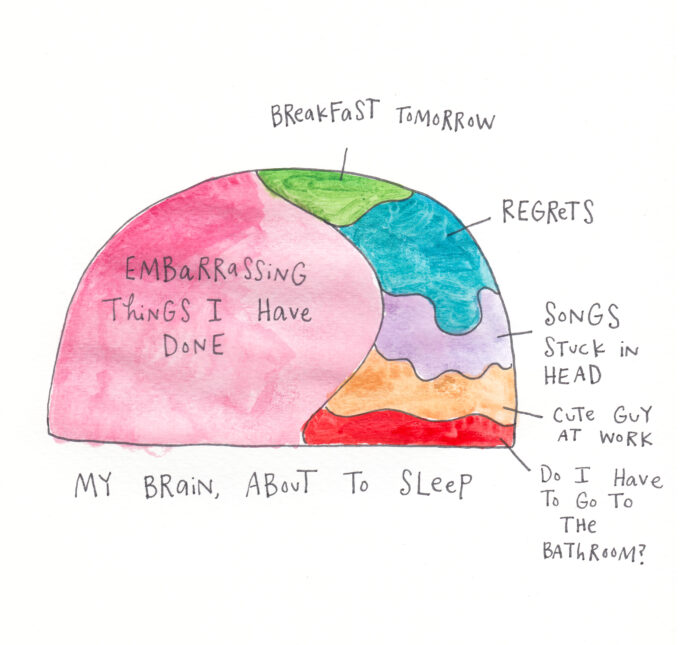 BReaKFaST ToMoRRoW
REGReTS
EMBaRRaSSiNG
ThiNGS I Have
DoNE
SoNGS
STuCK iN
HEAD
CuTe GuY
AT WoRK
Do I Have
To Go To
THe
BAThRooM?
MY BRaiN, ABouT To SLeeP